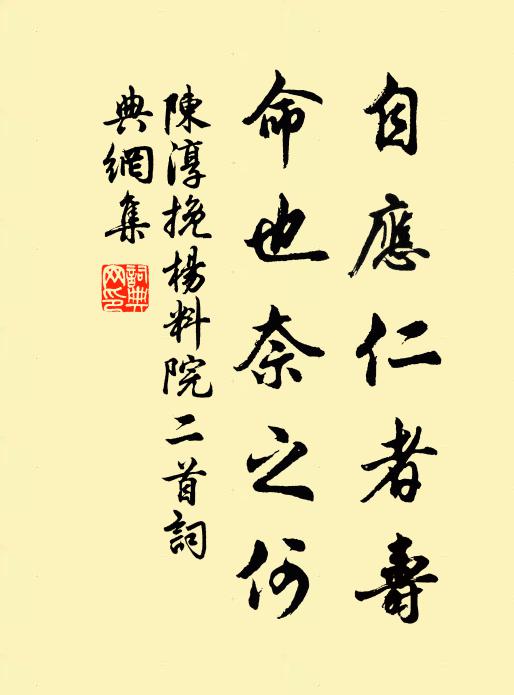 自應仁者壽
命也奈之何
陳淳挽楊料院二首詞
典網集
詞典網印